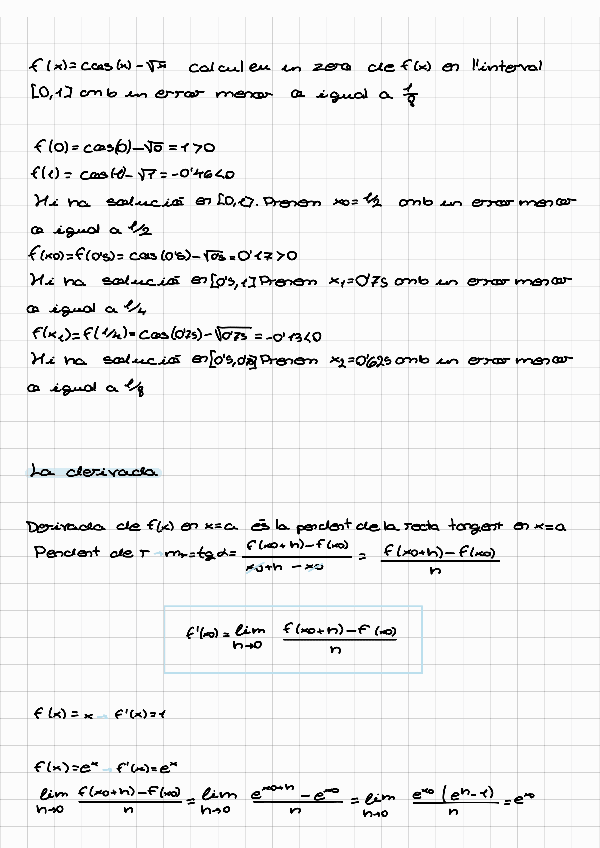 f(x)=cos(x)-√x calculeu un zero de f(x) en l'interval
[0,1] amb un error menor o igual a 1/8
f(0)=cos(0)-√0=1>0
f(1)=cos(1)-√1=-0'46<0
Hi ha solució en [0,1]. Prenem x0=1/2 amb un error menor
o igual a 1/2
f(x0)=f(0'5)=cos(0'5)-√0'5=0'17>0
Hi ha solució en [0'5,1] Prenem x1=0'75 amb un error menor
o igual a 1/4
f(x1)=f(1/4)=cos(0'75)-√0'75=-0'13<0
Hi ha solució en [0'5,0'75] Prenem x2=0'625 amb un error menor
o igual a 1/8
La derivada
Derivada de f(x) en x=a és la pendent de la recta tangent en x=a
Pendent de r → mr=tgα= (f(x0+h)-f(x0))/(x0+h-x0) = (f(x0+h)-f(x0))/h
f'(x0)=lim h→0 (f(x0+h)-f(x0))/h
f(x)=x → f'(x)=1
f(x)=e^x → f'(x)=e^x
lim h→0 (f(x0+h)-f(x0))/h = lim h→0 (e^(x0+h)-e^x0)/h = lim h→0 (e^x0(e^h-1))/h = e^x0